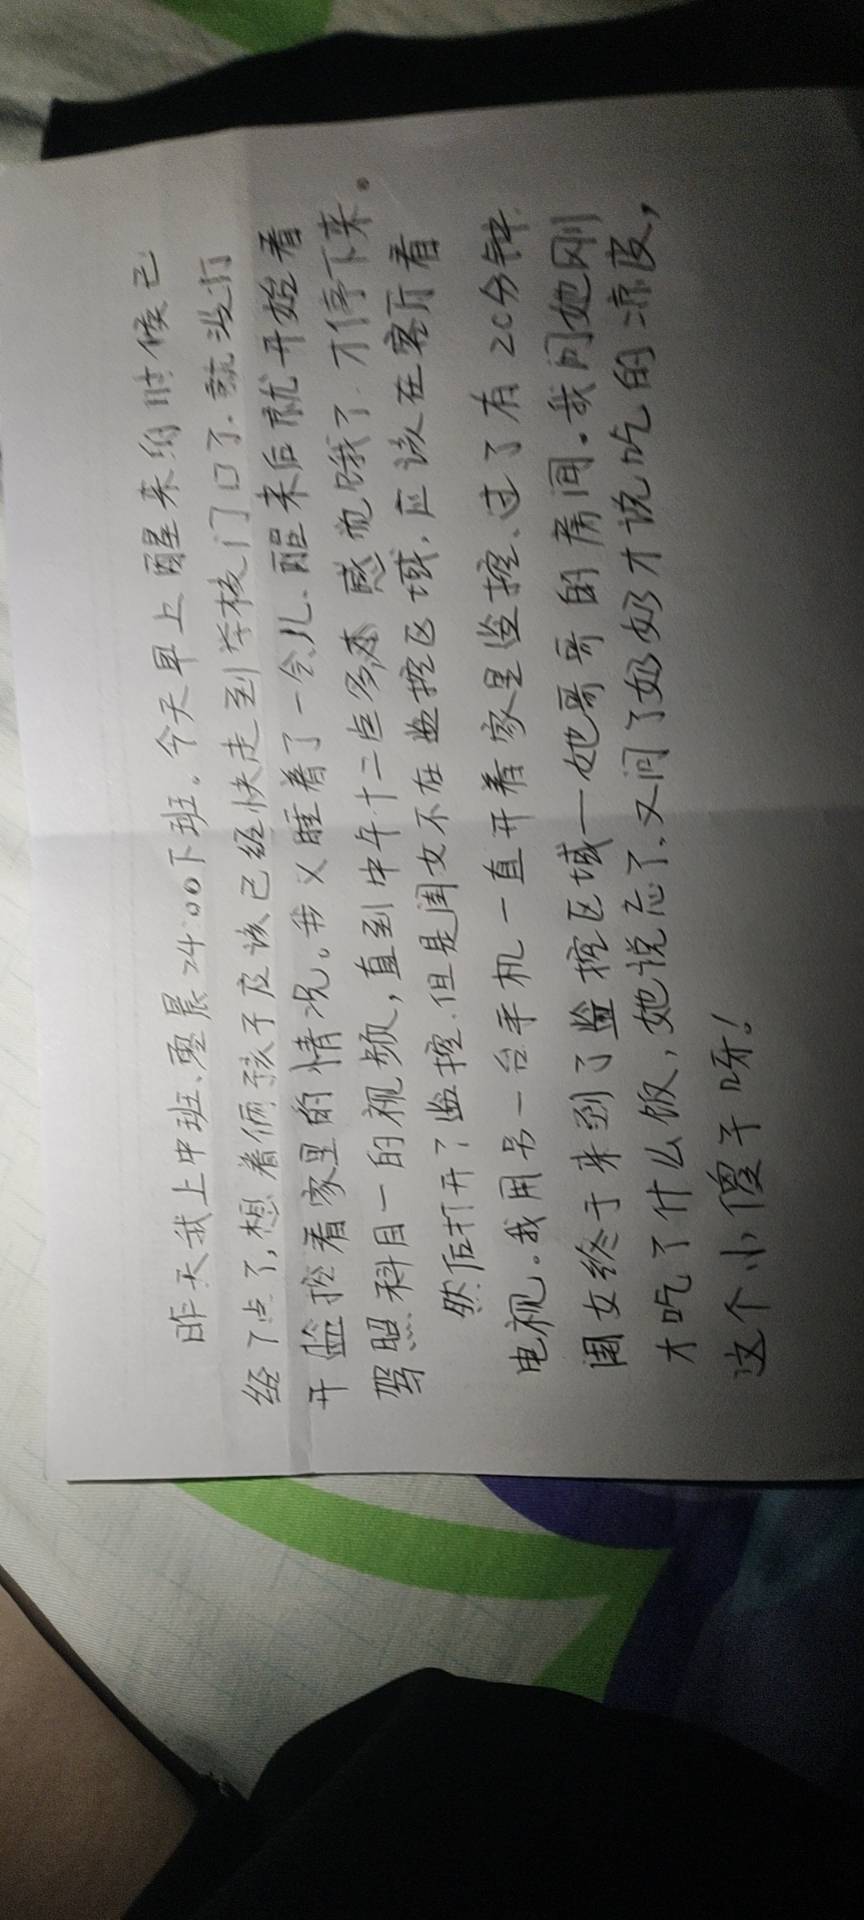 昨天我上中班、凌晨24:00下班。今天早上醒来的时候已
经7点了,想着俩孩子应该已经快走到学校门口了.就没打
开监控看家里的情况。我又睡着了一会儿、醒来后就开始看
驾照科目一的视频,直到中午十二点多 感觉饿了.才停下来。
然后打开了监控.但是闺女不在监控区域.应该在客厅看
电视。我用另一台手机一直开着家里监控、过了有20分钟
闺女终于来到了监控区域—她哥哥的房间。我问她刚
才吃了什么饭,她说忘了、又问了奶奶才说吃的凉皮,
这个小傻子呀!